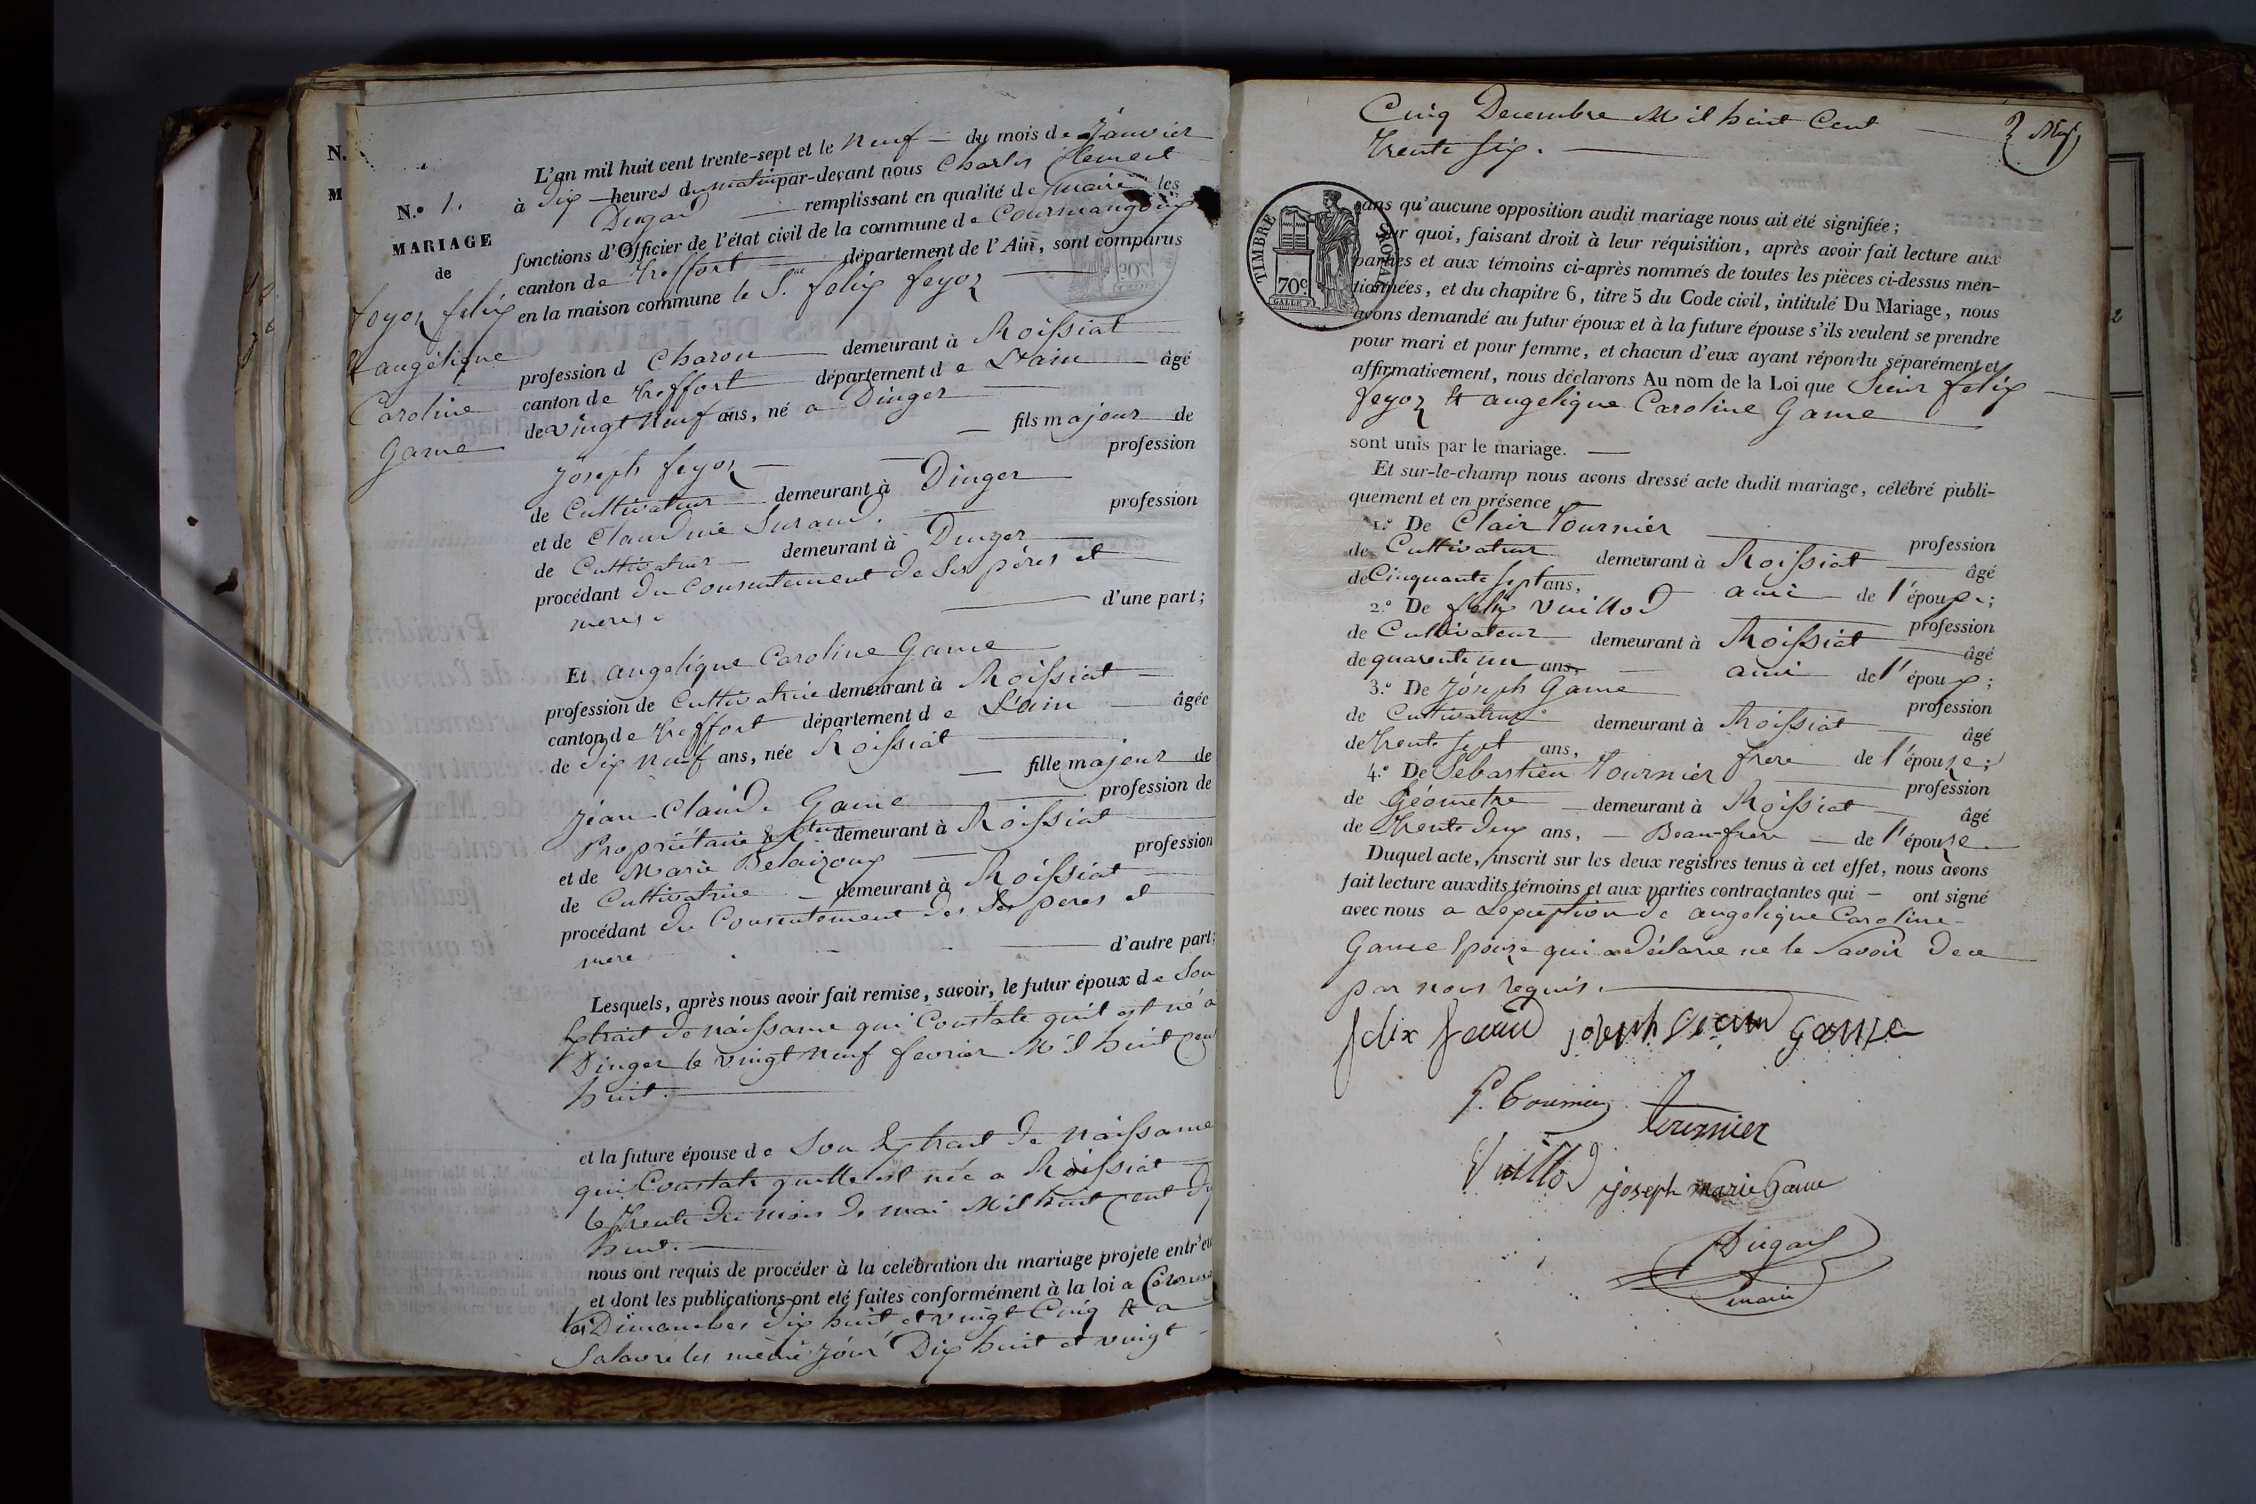 N.º 1.
MARIAGE
de
feyoz felix
et angélique
Caroline
Game
L'an mil huit cent trente-sept et le neuf du mois de Janvier
à dix heures du matin par-devant nous Charles Clement
Dugad remplissant en qualité de maire les
fonctions d'Officier de l'état civil de la commune de Courmangoux
canton de treffort département de l'Ain, sont comparus
en la maison commune le S.r felix feyoz
profession d Charon demeurant à Roissiat
canton de treffort département d e L'ain âgé
de vingt neuf ans, né a Dinger
fils majeur de
Joseph feyoz profession
de Cultivateur demeurant à Dinger
et de Claudine Suraud. profession
de Cultivateur demeurant à Dinger
procédant du Consentement de Ses pères et
meres. d'une part;
Et angelique Caroline Game
profession de Cultivatrice demeurant à Roissiat
canton de treffort département d e L'ain âgée
de dix neuf ans, née Roissiat
fille majeur de
Jean-Claude Game profession de
Propriétaire demeurant à Roissiat
et de Marie Delaizoux profession
de Cultivatrice demeurant à Roissiat
procédant du Consentement des Ses peres et
mere d'autre part;
Lesquels, après nous avoir fait remise, savoir, le futur époux d e Son
Extrait de naissance qui Constate qu'il est né a
Dinger le vingt neuf fevrier Mil huit Cent
huit.
et la future épouse d e Son Extrait de naissance
qui Constate quelle est née a Roissiat
le trente du mois de mai Mil huit Cent dix
huit.
nous ont requis de procéder à la celébration du mariage projete entr'eux
et dont les publications ont eté faites conformément à la loi a
les Dimanches dix huit et vingt Cinq et a
Salavre les même Jour Dix huit et vingt
Cinq Decembre Mil huit Cent
trente Six.
2
TIMBRE ROYAL
70c
GALLE F.
sans qu'aucune opposition audit mariage nous ait été signifiée;
Sur quoi, faisant droit à leur réquisition, après avoir fait lecture aux
parties et aux témoins ci-après nommés de toutes les pièces ci-dessus men-
tionnées, et du chapitre 6, titre 5 du Code civil, intitulé Du Mariage, nous
avons demandé au futur époux et à la future épouse s'ils veulent se prendre
pour mari et pour femme, et chacun d'eux ayant répondu séparément et
affirmativement, nous déclarons Au nom de la Loi que Sieur felix
feyoz et angelique Caroline Game
sont unis par le mariage.
Et sur-le-champ nous avons dressé acte dudit mariage, célébré publi-
quement et en présence
1.º De Clair Tournier profession
de Cultivateur demeurant à Roissiat âgé
de Cinquante Sept ans, ami de l'époux;
2.º De felix Vuillod profession
de Cultivateur demeurant à Roissiat âgé
de quarente un ans ami de l'époux;
3.º De Joseph Game profession
de Cultivateur demeurant à Roissiat âgé
de trente sept ans, frere de l'épouze;
4.º De Sébastien Tournier profession
de Géometre demeurant à Roissiat âgé
de trente deux ans, Beau-frere de l'épouze
Duquel acte, inscrit sur les deux registres tenus à cet effet, nous avons
fait lecture auxdits témoins et aux parties contractantes qui ont signé
avec nous a Lexception de angelique Caroline
Game Epouze qui a déclaré ne le Savoir de ce
par nous requis.
felix joseph Game
Tournier
Vuillod joseph marie Game
Dugad
maire